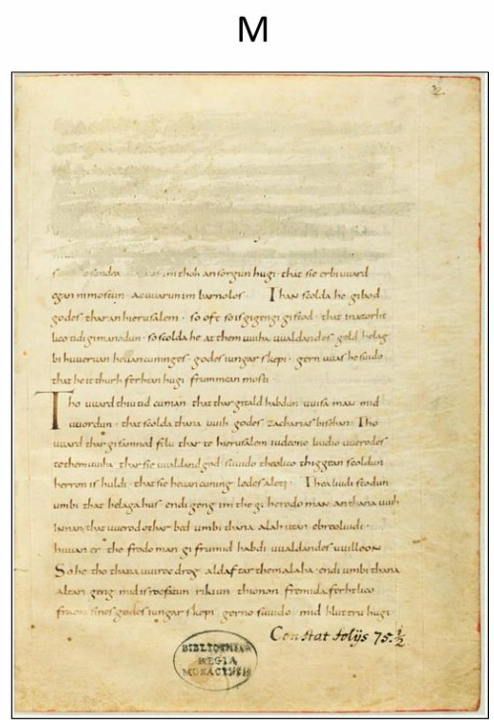 M
2.
im thoh an sorgun hugi · that sie erbiuuard
egan ni mostun · ac uuarun im barnolos · Than scolda he gibod
godes thar an hierusalem · so oft so is gigengi gistod · that ina torht
lico tidi gimanodun · so scolda he at them uuiha uualdandes geld helag
bi huuervan hevancuninges godes iungarskepi · gern uuas he suido
that he it thurh ferhtan hugi frummean mosti
Tho uuard thiu tid cuman that thar gitald habdun uuisa man mid
uuordun · that scolda thana uuih godes zacharias bisehan · Tho
uuard thar gisamnod filu thar te hierusalem iudeono liudio uuerodes
te them uuiha thar sie uualdand god suuido theolico thiggean scoldun
herron is huldi · that sie hevancuning ledes aleti · Thea liudi stodun
umbi that helaga hus endi geng im the gi herodo man an thana uuih
innan that uuerod odar bed umbi thana alah utan ebreo liudi
huuan er the frodo man gi frumid habdi uualdandes uuilleon
So he tho thana uuiroc drog ald aftar them alaha · endi umbi thana
altari geng mid is rocfatun rikiun thionon fremida ferhtlico
fraon sines godes iungarskepi gerno suuido mid hluttru hugi
Constat folijs 75 ½
BIBLIOTHECA
REGIA
MONACENSIS